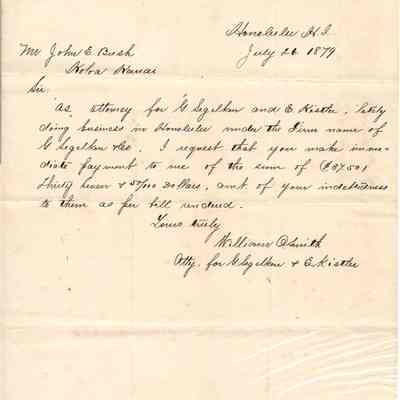 Honolulu H.I.
July 26 1879
Mr John E. Bush
Koloa Kauai
Sir
As attorney for G Segelken and E. Kistler, lately
doing business in Honolulu under the Firm name of
G Segelken & Co. I request that you make imme-
diate payment to me of the sum of ($37.50)
thirty seven & 50/100 Dollars, amt of your indebtedness
to them as per bill rendered.
Yours truly
William O Smith
Atty. for G Segelken & E Kistler